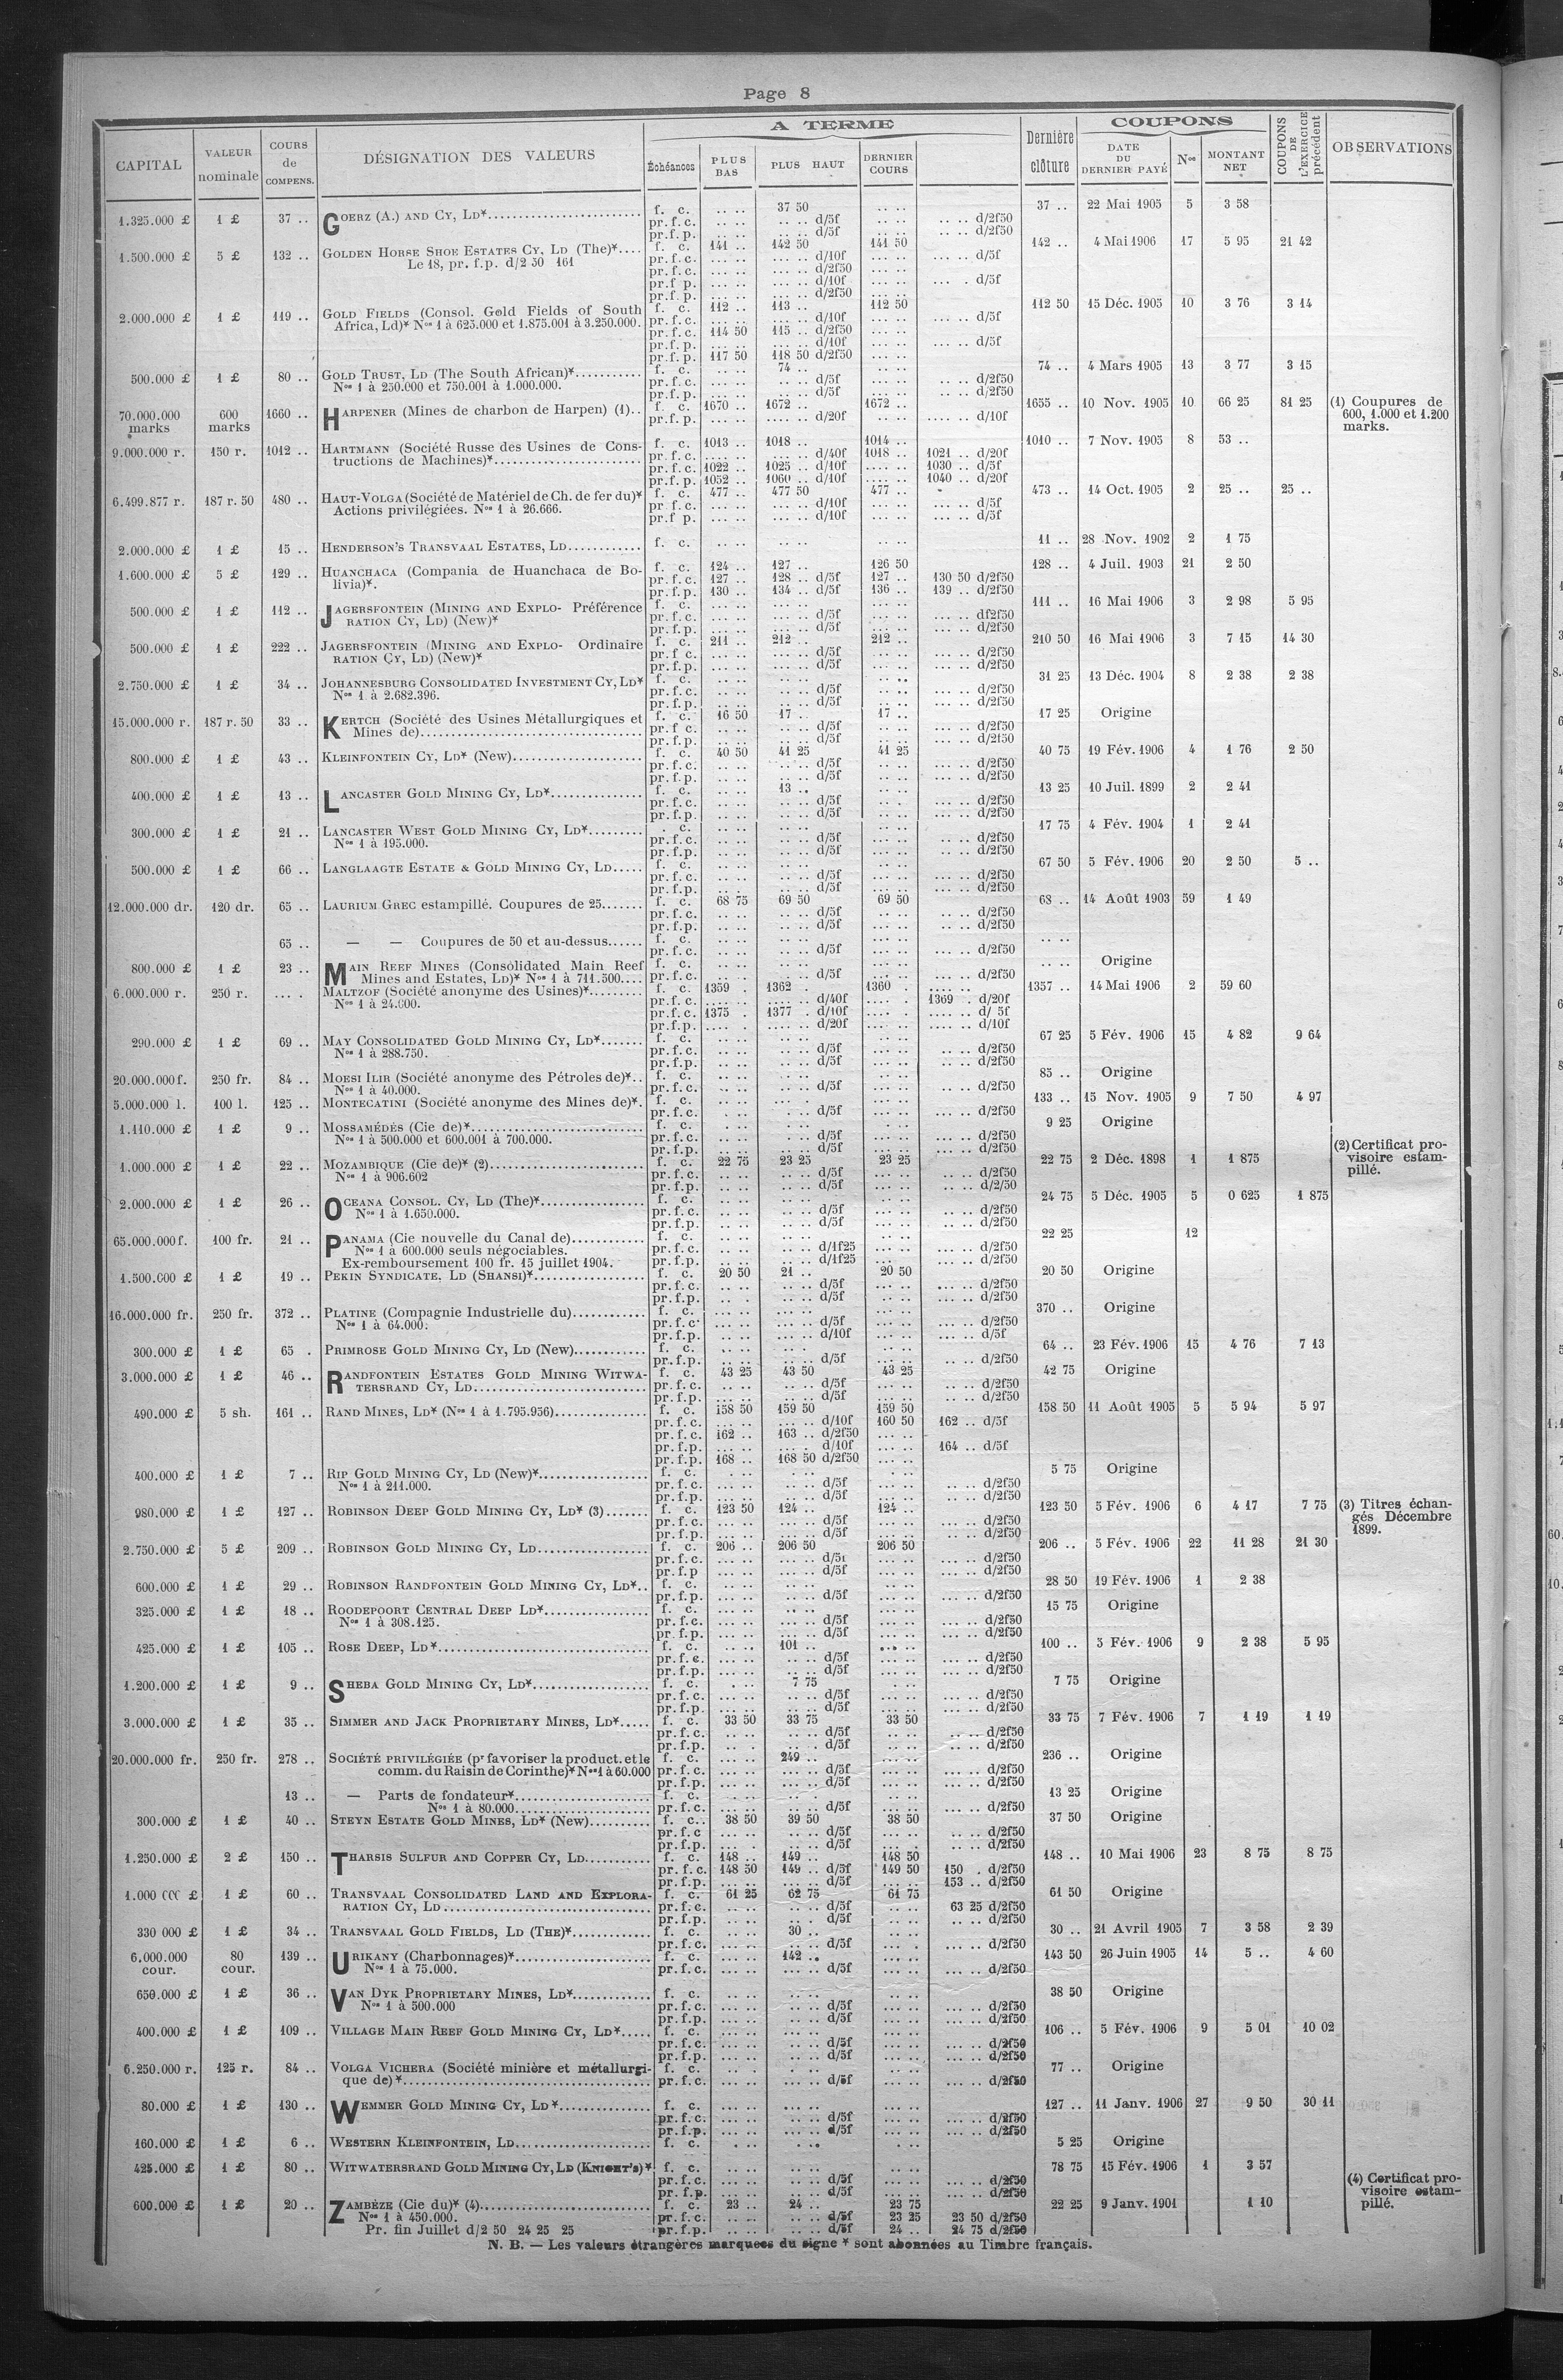 Page 8
CAPITAL VALEUR nominale COURS de COMPENS. DÉSIGNATION DES VALEURS A TERME Échéances PLUS BAS PLUS HAUT DERNIER COURS Dernière clôture COUPONS DATE DU DERNIER PAYÉ Nos MONTANT NET COUPONS DE L'EXERCICE précédent OBSERVATIONS
1.325.000 £ 1 £ 37 .. GOERZ (A.) AND CY, LD* f. c. .. .. 37 50 .. .. 37 .. 22 Mai 1905 5 3 58
pr.f.c. .. .. .. .. d/5f .. .. .. .. d/2f50
pr.f.p. .. .. .. .. d/5f .. .. .. .. d/2f50
1.500.000 £ 5 £ 132 .. GOLDEN HORSE SHOE ESTATES CY, LD (The)* f. c. 141 .. 142 50 141 50 142 .. 4 Mai 1906 17 5 95 21 42
Le 18, pr. f.p. d/2 50 161 pr.f.c. ... .. ... .. d/10f ... .. ... .. d/5f
pr.f.c. ... .. ... .. d/2f50 ... ..
pr.f p. ... .. ... .. d/10f ... .. ... . d/5f
pr.f p. ... .. ... .. d/2f50 ... ..
2.000.000 £ 1 £ 119 .. GOLD FIELDS (Consol. Gold Fields of South f. c. 112 .. 113 .. 112 50 112 50 15 Déc. 1905 10 3 76 3 14
Africa, Ld)* Nos 1 à 625.000 et 1.875.001 à 3.250.000. pr.f.c. ... .. ... .. d/10f ... .. ... .. d/5f
pr.f.c. 114 50 115 .. d/2f50 ... ..
pr.f.p. ... .. ... .. d/10f ... .. ... .. d/5f
pr.f.p. 117 50 118 50 d/2f50 ... ..
500.000 £ 1 £ 80 .. GOLD TRUST, LD (The South African)* f. c. .. .. 74 .. .. .. 74 .. 4 Mars 1905 13 3 77 3 15
Nos 1 à 250.000 et 750.001 à 1.000.000. pr.f.c. .. .. .. .. d/5f .. .. .. .. d/2f50
pr.f.p. .. .. .. .. d/5f .. .. .. .. d/2f50
70.000.000 marks 600 marks 1660 .. HARPENER (Mines de charbon de Harpen) (1).. f. c. 1670 .. 1672 .. 1672 .. 1655 .. 10 Nov. 1905 10 66 25 81 25 (1) Coupures de 600, 1.000 et 1.200 marks.
pr.f.p. .... .. .... .. d/20f .... .. .... .. d/10f
9.000.000 r. 150 r. 1012 .. HARTMANN (Société Russe des Usines de Cons- f. c. 1013 .. 1018 .. 1014 .. 1010 .. 7 Nov. 1905 8 53 ..
tructions de Machines)* pr.f.c. .... .. .... .. d/40f 1018 .. 1021 .. d/20f
pr.f.c. 1022 .. 1025 .. d/10f .... .. 1030 .. d/5f
pr.f.p. 1052 .. 1060 .. d/10f .... .. 1040 .. d/20f
6.499.877 r. 187 r. 50 480 .. HAUT-VOLGA (Société de Matériel de Ch. de fer du)* f. c. 477 .. 477 50 477 .. 473 .. 14 Oct. 1905 2 25 .. 25 ..
Actions privilégiées. Nos 1 à 26.666. pr f.c. ... .. ... .. d/10f ... .. ... .. d/5f
pr.f p. ... .. ... .. d/10f ... .. ... .. d/5f
2.000.000 £ 1 £ 15 .. HENDERSON'S TRANSVAAL ESTATES, LD f. c. .. .. .. .. .. .. 11 .. 28 Nov. 1902 2 1 75
1.600.000 £ 5 £ 129 .. HUANCHACA (Compania de Huanchaca de Bo- f. c. 124 .. 127 .. 126 50 128 .. 4 Juil. 1903 21 2 50
livia)*. pr.f.c. 127 .. 128 .. d/5f 127 .. 130 50 d/2f50
pr.f.p. 130 .. 134 .. d/5f 136 .. 139 .. d/2f50
500.000 £ 1 £ 112 .. JAGERSFONTEIN (MINING AND EXPLO- Préférence f. c. ... .. ... .. ... .. 111 .. 16 Mai 1906 3 2 98 5 95
RATION CY, LD) (New)* pr.f.c. ... .. ... .. d/5f ... .. ... .. df2f50
pr.f.p. ... .. ... .. d/5f ... .. ... .. d/2f50
500.000 £ 1 £ 222 .. JAGERSFONTEIN (MINING AND EXPLO- Ordinaire f. c. 211 .. 212 .. 212 .. 210 50 16 Mai 1906 3 7 15 14 30
RATION CY, LD) (New)* pr.f c. ... .. ... .. d/5f ... .. ... .. d/2f50
pr.f.p. ... .. ... .. d/5f ... .. ... .. d/2f50
2.750.000 £ 1 £ 34 .. JOHANNESBURG CONSOLIDATED INVESTMENT CY, LD* f. c. .. .. .. .. .. .. 31 25 13 Déc. 1904 8 2 38 2 38
Nos 1 à 2.682.396. pr.f.c. .. .. .. .. d/5f .. .. ... .. d/2f50
pr.f.p. .. .. .. .. d/5f .. .. ... .. d/2f50
15.000.000 r. 187 r. 50 33 .. KERTCH (Société des Usines Métallurgiques et f. c. 16 50 17 .. 17 .. 17 25 Origine
Mines de) pr.f c. .. .. .. .. d/5f .. .. ... .. d/2f50
pr.f.p. .. .. .. .. d/5f .. .. ... .. d/2f50
800.000 £ 1 £ 43 .. KLEINFONTEIN CY, LD* (New) f. c. 40 50 41 25 41 25 40 75 19 Fév. 1906 4 1 76 2 50
pr.f.c. .. .. .. .. d/5f .. .. ... .. d/2f50
pr.f.p. .. .. .. .. d/5f .. .. ... .. d/2f50
400.000 £ 1 £ 13 .. LANCASTER GOLD MINING CY, LD* f. c. .. .. 13 .. .. .. 13 25 10 Juil. 1899 2 2 41
pr.f.c. .. .. .. .. d/5f .. . ... .. d/2f50
pr.f.p. .. .. .. .. d/5f .. .. ... .. d/2f50
300.000 £ 1 £ 21 .. LANCASTER WEST GOLD MINING CY, LD* . c. .. .. .. .. .. .. 17 75 4 Fév. 1904 1 2 41
Nos 1 à 195.000. pr.f.c. .. .. .. .. d/5f ... .. ... .. d/2f50
pr.f.p. .. .. .. .. d/5f ... .. ... .. d/2f50
500.000 £ 1 £ 66 .. LANGLAAGTE ESTATE & GOLD MINING CY, LD f. c. .. .. .. .. .. .. 67 50 5 Fév. 1906 20 2 50 5 ..
pr.f.c. .. .. .. .. d/5f ... .. ... .. d/2f50
pr.f.p. .. .. .. .. d/5f ... .. ... .. d/2f50
12.000.000 dr. 120 dr. 65 .. LAURIUM GREC estampillé. Coupures de 25 f. c. 68 75 69 50 69 50 68 .. 14 Août 1903 59 1 49
pr.f.c. .. .. .. .. d/5f .. .. .. .. d/2f50
pr.f.p. .. .. .. .. d/5f .. .. .. .. d/2f50
65 .. — — Coupures de 50 et au-dessus f. c. .. .. .. .. .. .. .. ..
pr.f.c. .. .. .. .. d/5f ... .. ... .. d/2f50
800.000 £ 1 £ 23 .. MAIN REEF MINES (Consolidated Main Reef f. c. .. .. .. .. .. .. .. .. Origine
Mines and Estates, LD)* Nos 1 à 711.500 pr.f.c. .. .. .. .. d/5f ... .. ... .. d/2f50
6.000.000 r. 250 r. ... . MALTZOF (Société anonyme des Usines)* f. c. 1359 . 1362 .. 1360 . .... .. 1357 .. 14 Mai 1906 2 59 60
Nos 1 à 24.000. pr.f.c. .... .. .... .. d/40f .... .. 1369 . d/20f
pr.f.c. 1375 . 1377 . d/10f .... . .... .. d/ 5f
pr.f.p. .... . .... .. d/20f .... .. .... .. d/10f
290.000 £ 1 £ 69 .. MAY CONSOLIDATED GOLD MINING CY, LD* f. c. .. .. .. .. .. .. 67 25 5 Fév. 1906 15 4 82 9 64
Nos 1 à 288.750. pr.f.c. .. .. .. .. d/5f ... .. .. .. d/2f50
pr.f.p. .. .. .. .. d/5f ... .. .. .. d/2f50
20.000.000 f. 250 fr. 84 .. MOESI ILIR (Société anonyme des Pétroles de)*.. f. c. .. .. ... .. ... .. 85 .. Origine
Nos 1 à 40.000. pr.f.c. .. .. .. .. d/5f ... .. .. .. d/2f50
5.000.000 l. 100 l. 125 .. MONTECATINI (Société anonyme des Mines de)*. f. c. .. .. ... .. ... .. 133 .. 15 Nov. 1905 9 7 50 4 97
pr.f.c. . .. . .. d/5f ... .. ... .. d/2f50
1.110.000 £ 1 £ 9 .. MOSSAMÉDÉS (Cie de)* f. c. . .. . .. . .. 9 25 Origine
Nos 1 à 500.000 et 600.001 à 700.000. pr.f.c. .. .. .. .. d/5f ... .. ... .. d/2f50
pr.f.p. .. .. .. .. d/5f ... .. ... .. d/2f50
1.000.000 £ 1 £ 22 .. MOZAMBIQUE (Cie de)* (2) f. c. 22 75 23 25 23 25 22 75 2 Déc. 1898 1 1 875 (2) Certificat pro- visoire estam- pillé.
Nos 1 à 906.602 pr.f.c. .. .. .. .. d/5f ... .. .. .. d/2f50
pr.f.p. .. .. .. .. d/5f ... .. .. .. d/2/50
2.000.000 £ 1 £ 26 .. OCEANA CONSOL. CY, LD (The)* f. c. .. .. .. .. .. .. 24 75 5 Déc. 1905 5 0 625 1 875
Nos 1 à 1.650.000. pr.f.c. .. .. .. .. d/5f ... .. .. .. d/2f50
pr.f.p. .. .. .. .. d/5f ... .. .. .. d/2f50
65.000.000 f. 100 fr. 21 .. PANAMA (Cie nouvelle du Canal de) f. c. .. .. .. .. .. .. 22 25 12
Nos 1 à 600.000 seuls négociables. pr.f.c. .. .. .. .. d/1f25 ... .. ... .. d/2f50
Ex-remboursement 100 fr. 15 juillet 1904. pr.f.p. .. .. .. .. d/1f25 ... .. ... .. d/2f50
1.500.000 £ 1 £ 19 .. PEKIN SYNDICATE. LD (SHANSI)* f. c. 20 50 21 .. 20 50 20 50 Origine
pr.f.c. .. .. .. .. d/5f ... .. ... .. d/2f50
pr.f.p. .. . .. .. d/5f ... .. ... .. d/2f50
16.000.000 fr. 250 fr. 372 .. PLATINE (Compagnie Industrielle du) f. c. ... .. ... .. ... .. 370 .. Origine
Nos 1 à 64.000. pr.f.c. ... .. ... .. d/5f ... .. ... .. d/2f50
pr.f.p. ... .. ... .. d/10f ... .. ... .. d/5f
300.000 £ 1 £ 65 . PRIMROSE GOLD MINING CY, LD (New) f. c. .. . .. . .. .. 64 .. 23 Fév. 1906 15 4 76 7 13
pr.f.p. .. .. .. . d/5f ... .. .. .. d/2f50
3.000.000 £ 1 £ 46 .. RANDFONTEIN ESTATES GOLD MINING WITWA- f. c. 43 25 43 50 43 25 42 75 Origine
TERSRAND CY, LD pr.f.c. .. .. .. .. d/5f ... .. .. .. d/2f50
pr.f.p. .. .. .. .. d/5f ... .. .. .. d/2f50
490.000 £ 5 sh. 161 .. RAND MINES, LD* (Nos 1 à 1.795.956) f. c. 158 50 159 50 159 50 158 50 11 Août 1905 5 5 94 5 97
pr.f.c. ... .. ... .. d/10f 160 50 162 .. d/5f
pr.f.c. 162 .. 163 .. d/2f50 ... ..
pr.f.p. ... .. ... . d/10f ... .. 164 .. d/5f
pr.f.p. 168 .. 168 50 d/2f50 ... ..
400.000 £ 1 £ 7 .. RIP GOLD MINING CY, LD (New)* f. c. . .. . .. . .. 5 75 Origine
Nos 1 à 211.000. pr.f.c. ... .. ... .. d/5f ... .. .. .. d/2f50
pr.f.p. ... .. ... .. d/5f ... .. .. .. d/2f50
980.000 £ 1 £ 127 .. ROBINSON DEEP GOLD MINING CY, LD* (3) f. c. 123 50 124 .. 124 .. 123 50 5 Fév. 1906 6 4 17 7 75 (3) Titres échan- gés Décembre 1899.
pr.f.c. ... .. ... .. d/5f ... .. ... .. d/2f50
pr.f.p. ... .. ... .. d/5f ... .. ... .. d/2f50
2.750.000 £ 5 £ 209 .. ROBINSON GOLD MINING CY, LD f. c. 206 .. 206 50 206 50 206 .. 5 Fév. 1906 22 11 28 21 30
pr.f.c. ... .. ... .. d/5f ... .. ... .. d/2f50
pr.f.p ... .. ... .. d/5f ... .. ... .. d/2f50
600.000 £ 1 £ 29 .. ROBINSON RANDFONTEIN GOLD MINING CY, LD*.. f. c. .. .. .. .. .. .. 28 50 19 Fév. 1906 1 2 38
pr.f.p. ... .. ... .. d/5f ... .. ... .. d/2f50
325.000 £ 1 £ 18 .. ROODEPOORT CENTRAL DEEP LD* f. c. ... .. .. .. ... .. 15 75 Origine
Nos 1 à 308.125. pr.f.c. ... .. ... .. d/5f ... .. ... .. d/2f50
pr.f.p. ... .. ... .. d/5f ... .. ... .. d/2f50
425.000 £ 1 £ 105 .. ROSE DEEP, LD* f. c. .. .. 101 .. ... .. 100 .. 5 Fév. 1906 9 2 38 5 95
pr.f.c. ... .. .. .. d/5f ... .. ... .. d/2f50
pr.f.p. ... .. .. .. d/5f ... .. ... .. d/2f50
1.200.000 £ 1 £ 9 .. SHEBA GOLD MINING CY, LD* f. c. . .. 7 75 . .. 7 75 Origine
pr.f.c. ... .. .. .. d/5f ... .. ... .. d/2f50
pr.f.p. ... .. .. .. d/5f ... .. ... .. d/2f50
3.000.000 £ 1 £ 35 .. SIMMER AND JACK PROPRIETARY MINES, LD* f. c. 33 50 33 75 33 50 33 75 7 Fév. 1906 7 1 19 1 19
pr.f.c. .. .. .. .. d/5f ... .. .. .. d/2f50
pr.f.p. .. .. .. . d/5f ... .. .. .. d/2f50
20.000.000 fr. 250 fr. 278 .. SOCIÉTÉ PRIVILÉGIÉE (pr favoriser la product. et le f. c. ... .. 249 .. ... .. 236 .. Origine
comm. du Raisin de Corinthe)* Nos 1 à 60.000 pr.f.c. ... .. ... .. d/5f ... .. ... .. d/2f50
pr.f.p. ... .. ... .. d/5f ... .. ... .. d/2f50
13 .. — Parts de fondateur* f. c. .. .. .. . .. .. 13 25 Origine
Nos 1 à 80.000 pr.f.c. ... .. .. .. d/5f ... .. ... .. d/2f50
300.000 £ 1 £ 40 .. STEYN ESTATE GOLD MINES, LD* (New) f. c. 38 50 39 50 38 50 37 50 Origine
pr.f.c ... .. .. .. d/5f ... .. .. .. d/2f50
pr.f.p. ... . .. .. d/5f ... . .. .. d/2f50
1.250.000 £ 2 £ 150 .. THARSIS SULFUR AND COPPER CY, LD f. c. 148 .. 149 .. 148 50 148 .. 10 Mai 1906 23 8 75 8 75
pr.f.c. 148 50 149 .. d/5f 149 50 150 . d/2f50
pr.f.p. ... .. ... .. d/5f ... .. 153 .. d/2f50
1.000 000 £ 1 £ 60 .. TRANSVAAL CONSOLIDATED LAND AND EXPLORA- f. c. 61 25 62 75 61 75 61 50 Origine
RATION CY, LD pr.f.c. .. .. .. .. d/5f .. .. 63 25 d/2f50
pr.f.p. .. .. .. . d/5f .. .. .. .. d/2f50
330 000 £ 1 £ 34 .. TRANSVAAL GOLD FIELDS, LD (THE)* f. c. .. .. 30 .. .. .. 30 .. 21 Avril 1905 7 3 58 2 39
pr.f.c. ... .. .. .. d/5f ... . ... .. d/2f50
6.000.000 cour. 80 cour. 139 .. URIKANY (Charbonnages)* f. c. ... .. 142 .. ... .. 143 50 26 Juin 1905 14 5 .. 4 60
Nos 1 à 75.000. pr.f.c. ... .. ... .. d/5f ... .. ... .. d/2f50
650.000 £ 1 £ 36 .. VAN DYK PROPRIETARY MINES, LD* f. c. .. .. .. .. .. .. 38 50 Origine
Nos 1 à 500.000 pr.f.c. ... .. .. .. d/5f ... .. ... .. d/2f50
pr.f.p. ... .. .. .. d/5f ... .. ... .. d/2f50
400.000 £ 1 £ 109 .. VILLAGE MAIN REEF GOLD MINING CY, LD* f. c. ... .. ... .. ... .. 106 .. 5 Fév. 1906 9 5 01 10 02
pr.f.c. ... .. .. .. d/5f ... .. ... .. d/2f50
pr.f.p. ... .. .. .. d/5f ... .. ... .. d/2f50
6.250.000 r. 125 r. 84 .. VOLGA VICHERA (Société minière et métallurgi- f. c. .. . .. .. .. .. 77 .. Origine
que de)* pr.f.c. ... .. ... .. d/5f ... .. ... .. d/2f50
80.000 £ 1 £ 130 .. WEMMER GOLD MINING CY, LD* f. c. ... .. ... .. ... .. 127 .. 11 Janv. 1906 27 9 50 30 11
pr.f.c. ... .. ... .. d/5f ... .. ... .. d/2f50
pr.f.p. ... .. ... .. d/5f ... .. ... .. d/2f50
160.000 £ 1 £ 6 .. WESTERN KLEINFONTEIN, LD f. c. . .. . .. . .. 5 25 Origine
425.000 £ 1 £ 80 .. WITWATERSRAND GOLD MINING CY, LD (KNIGHT'S)* f. c. .. .. .. .. .. .. 78 75 15 Fév. 1906 1 3 57
pr.f.c. ... .. ... .. d/5f ... .. ... .. d/2f50
pr.f.p. ... .. ... .. d/5f ... .. ... .. d/2f50
600.000 £ 1 £ 20 .. ZAMBÈZE (Cie du)* (4) f. c. 23 .. 24 .. 23 75 22 25 9 Janv. 1901 1 10 (4) Certificat pro- visoire estam- pillé.
Nos 1 à 450.000. pr.f.c. .. .. .. .. d/5f 23 25 23 50 d/2f50
Pr. fin Juillet d/2 50 24 25 25 pr.f.p. .. .. .. .. d/5f 24 .. 24 75 d/2f50
N. B. — Les valeurs étrangères marquées du signe * sont abonnées au Timbre français.